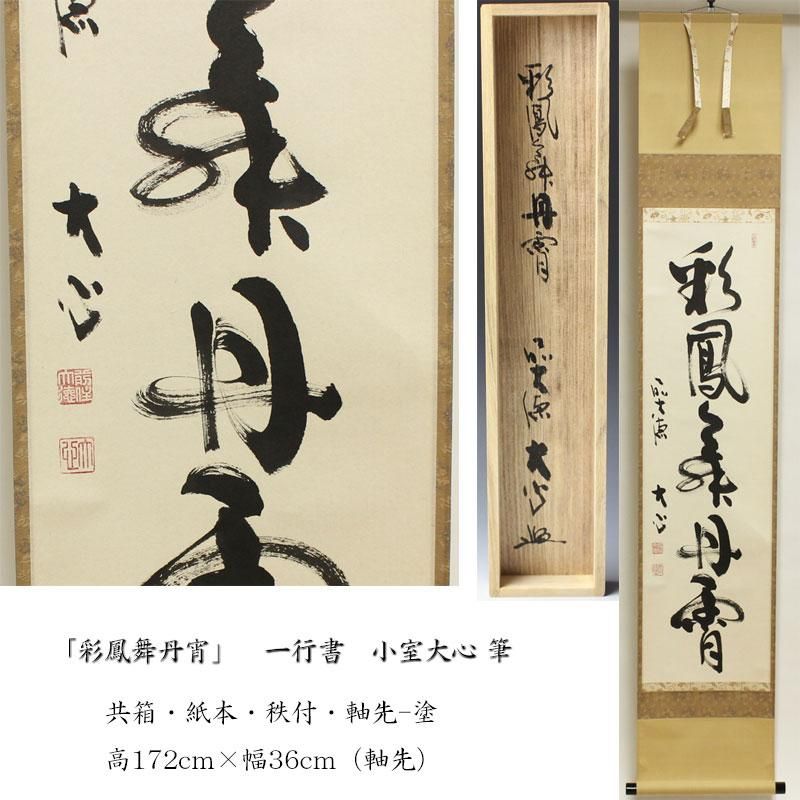 大心
舞
丹
彩鳳舞丹霄
前大徳 大心
彩鳳舞丹霄
前大徳 大心
「彩鳳舞丹宵」　一行書　小室大心 筆
共箱・紙本・秩付・軸先-塗
高172cm×幅36cm（軸先）